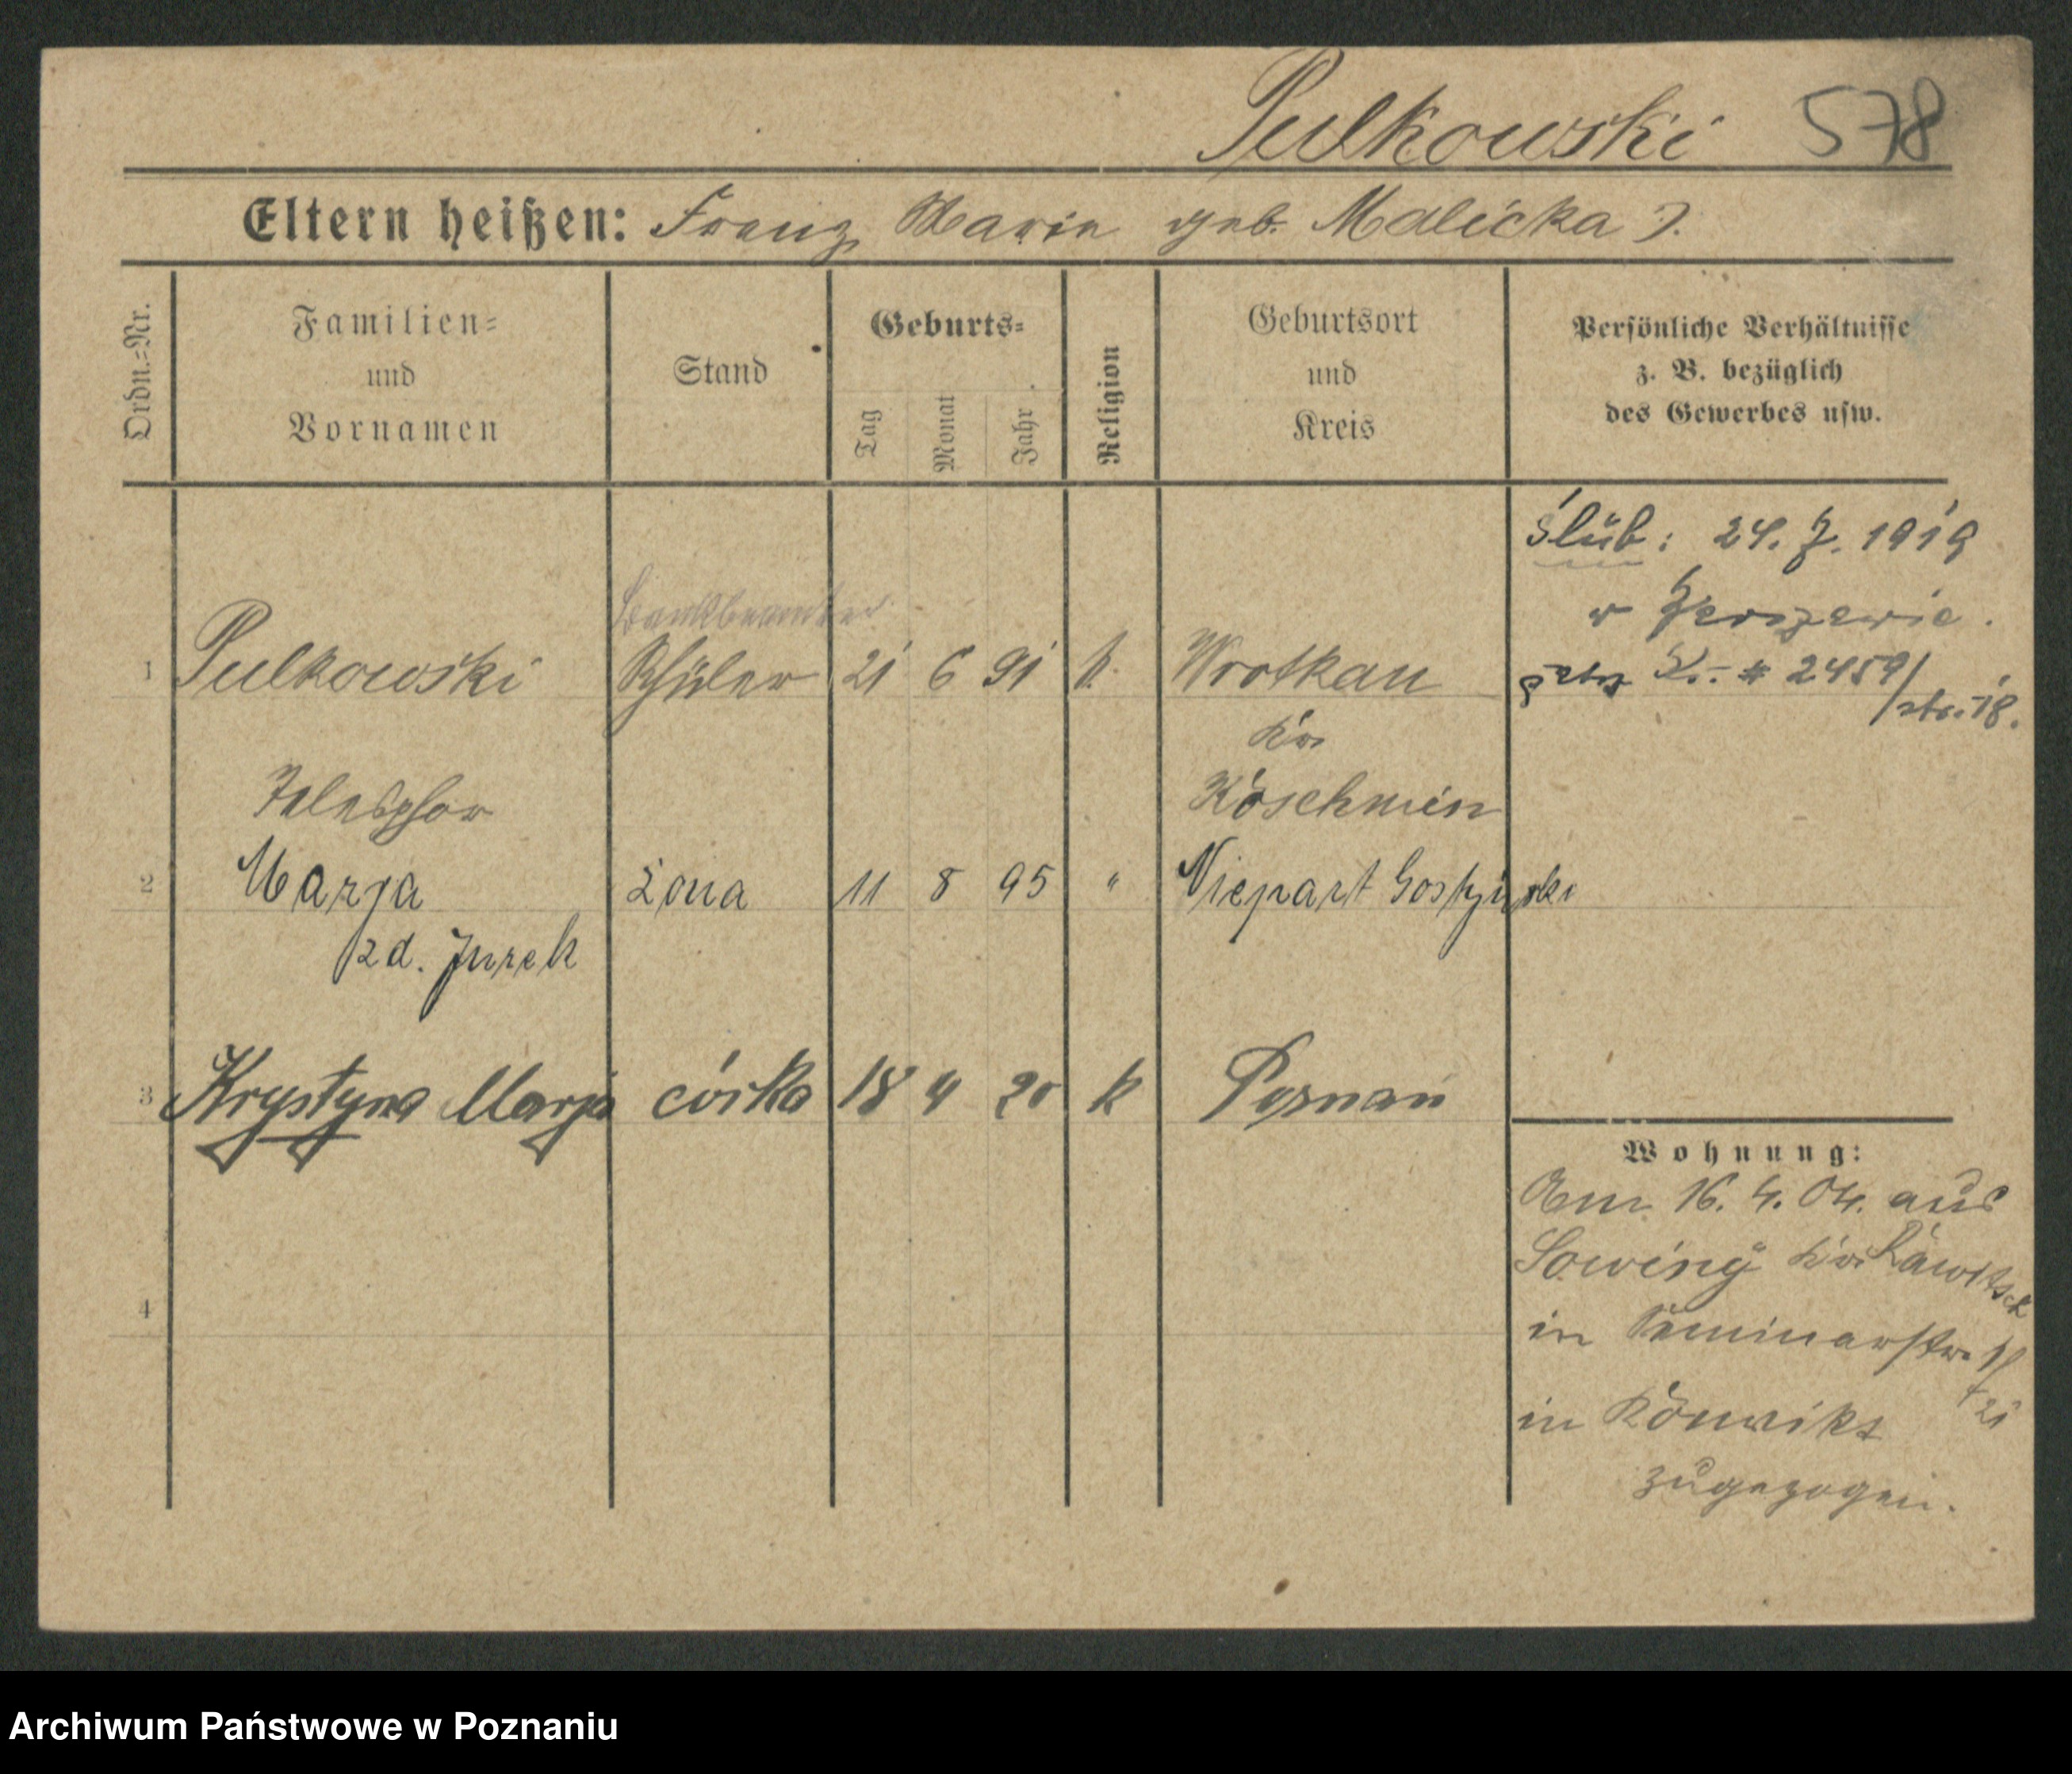 Pulkowski 578
Eltern heißen: Franz Marie geb. Malicka
Ordn.=Nr.
Familien=
und
Vornamen
Stand
Geburts=
Tag
Monat
Jahr
Religion
Geburtsort
und
Kreis
Persönliche Verhältnisse
z. B. bezüglich
des Gewerbes usw.
Ślub: 24. 7. 1919
w
2459/
str. 18.
Bankbeamter
1 Pulkowski Schüler 21 6 91 k. Wrotkau
Kr.
Telesphor Koschmin
2 Marja żona 11 8 95 " Niepart Gostyński
zd. Jurek
3 Krystyna Marja córka 18 4 20 k Poznań
4
Wohnung:
Am 16. 4. 04. aus
Sowiny Kr. Rawitsch
in Seminarstr.
in Konvikt
zugezogen.
Archiwum Państwowe w Poznaniu